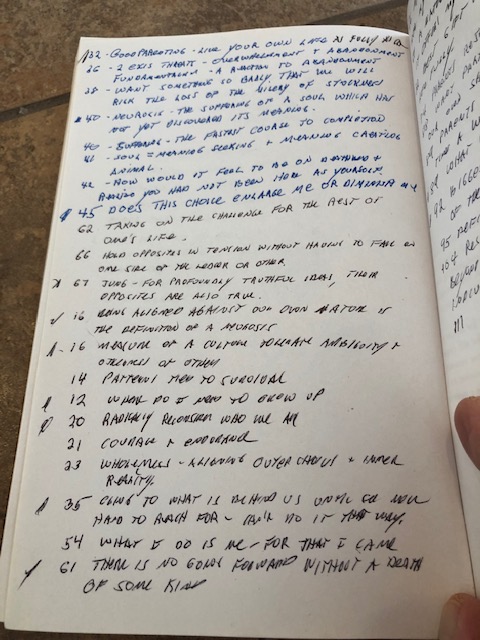 32 - GOOD PARENTING - LIVE YOUR OWN LIFE AS FULLY AS
36 - 2 EXIS THREAT - OVERWHELMENT + ABANDONMENT
FUNDAMENTALISM - A REACTION TO ABANDONMENT
38 - WANT SOMETHING SO BADLY, THAT WE WILL
RISK THE LOSS OF THE OF
40 - NEUROSIS - THE SUFFERING OF A SOUL WHICH HAS
NOT YET DISCOVERED ITS MEANING.
40 - SUFFERING - THE FASTEST COURSE TO COMPLETION
41 - SOUL = MEANING SEEKING + MEANING CREATING
ANIMAL.
42 - HOW WOULD IT FEEL TO BE ON DEATHBED +
REALIZE YOU HAD NOT BEEN HERE AS YOURSELF.
45 DOES THIS CHOICE ENLARGE ME OR DIMINISH ME
62 TAKING ON THE CHALLENGE FOR THE REST OF
ONE'S LIFE.
66 HOLD OPPOSITES IN TENSION WITHOUT HAVING TO FALL ON
ONE SIDE OF THE OR OTHER.
67 JUNG - FOR PROFOUNDLY TRUTHFUL IDEAS, THEIR
OPPOSITES ARE ALSO TRUE.
16 BEING ALIGNED AGAINST OUR OWN NATURE IS
THE DEFINITION OF A NEUROSIS
16 MEASURE OF A CULTURE TOLERATE AMBIGUITY +
OTHERNESS OF OTHERS
14 PATTERNS TIED TO SURVIVAL
12 WHERE DO I NEED TO GROW UP
20 RADICALLY RECONSIDER WHO WE ARE
21 COURAGE + ENDURANCE
23 WHOLENESS - ALIGNING OUTER CHOICES + INNER
REALITY.
35 CLING TO WHAT IS BEHIND US
HARD TO REACH FOR - CAN'T DO IT THAT WAY.
54 WHAT I DO IS ME - FOR THAT I CAME
61 THERE IS NO GOING FORWARD WITHOUT A DEATH
OF SOME KIND